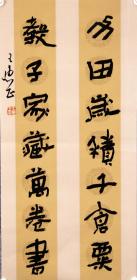 力田歲積千倉粟
教子家藏萬卷書